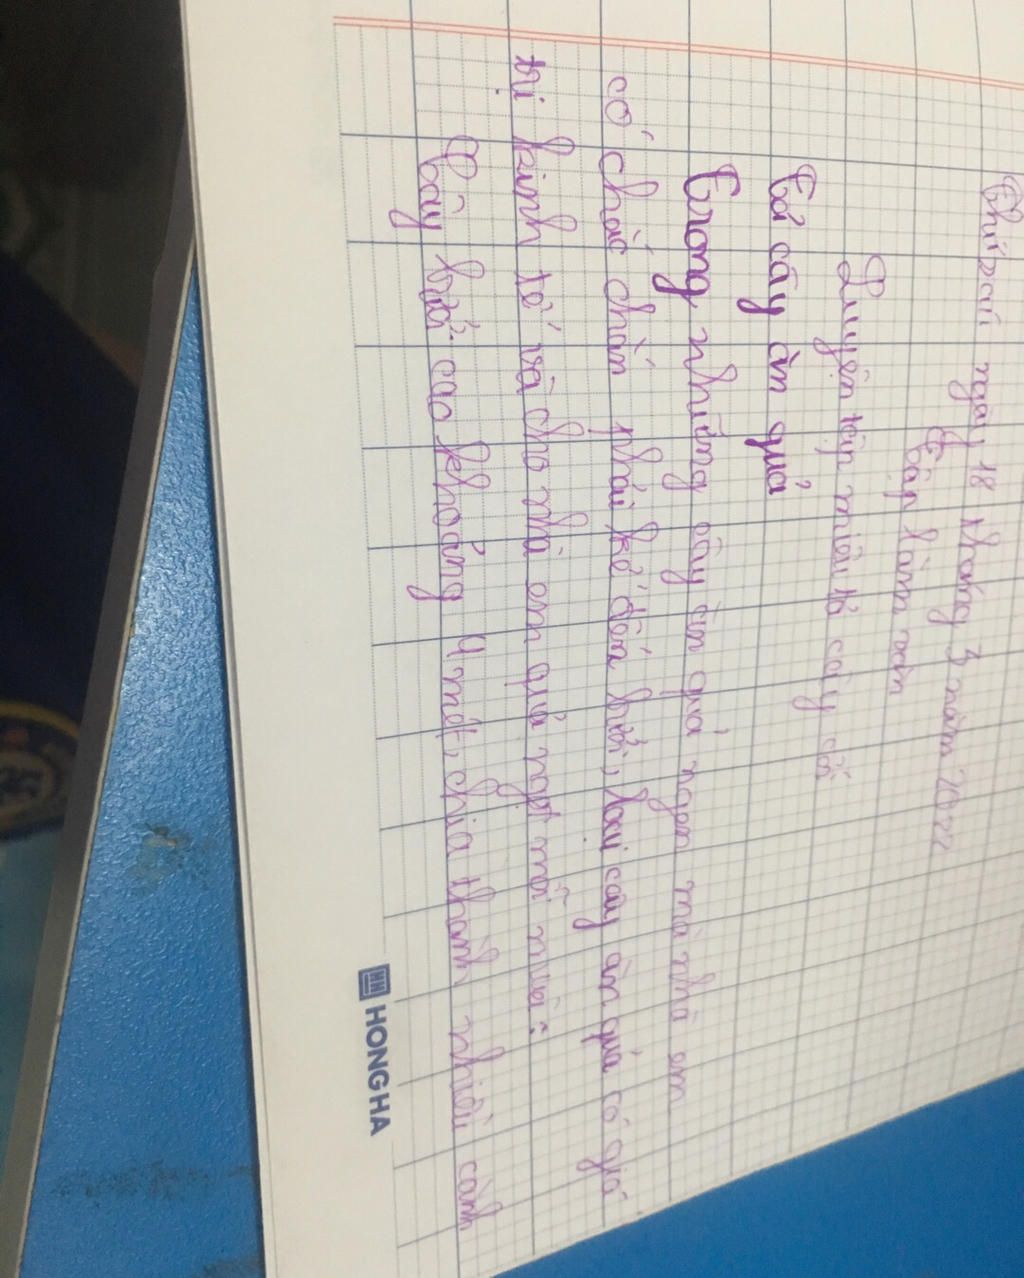 Thứ sáu ngày 18 tháng 3 năm 2022
Tập làm văn
Luyện tập miêu tả cây cối
Tả cây ăn quả
Trong những cây ăn quả ngon mà nhà em
có chắc chắn phải kể đến bưởi, loại cây ăn quả có giá
trị kinh tế và cho nhà em quả ngọt mỗi mùa.
Cây bưởi cao khoảng 4 mét, chia thành nhiều cành
HONG HA